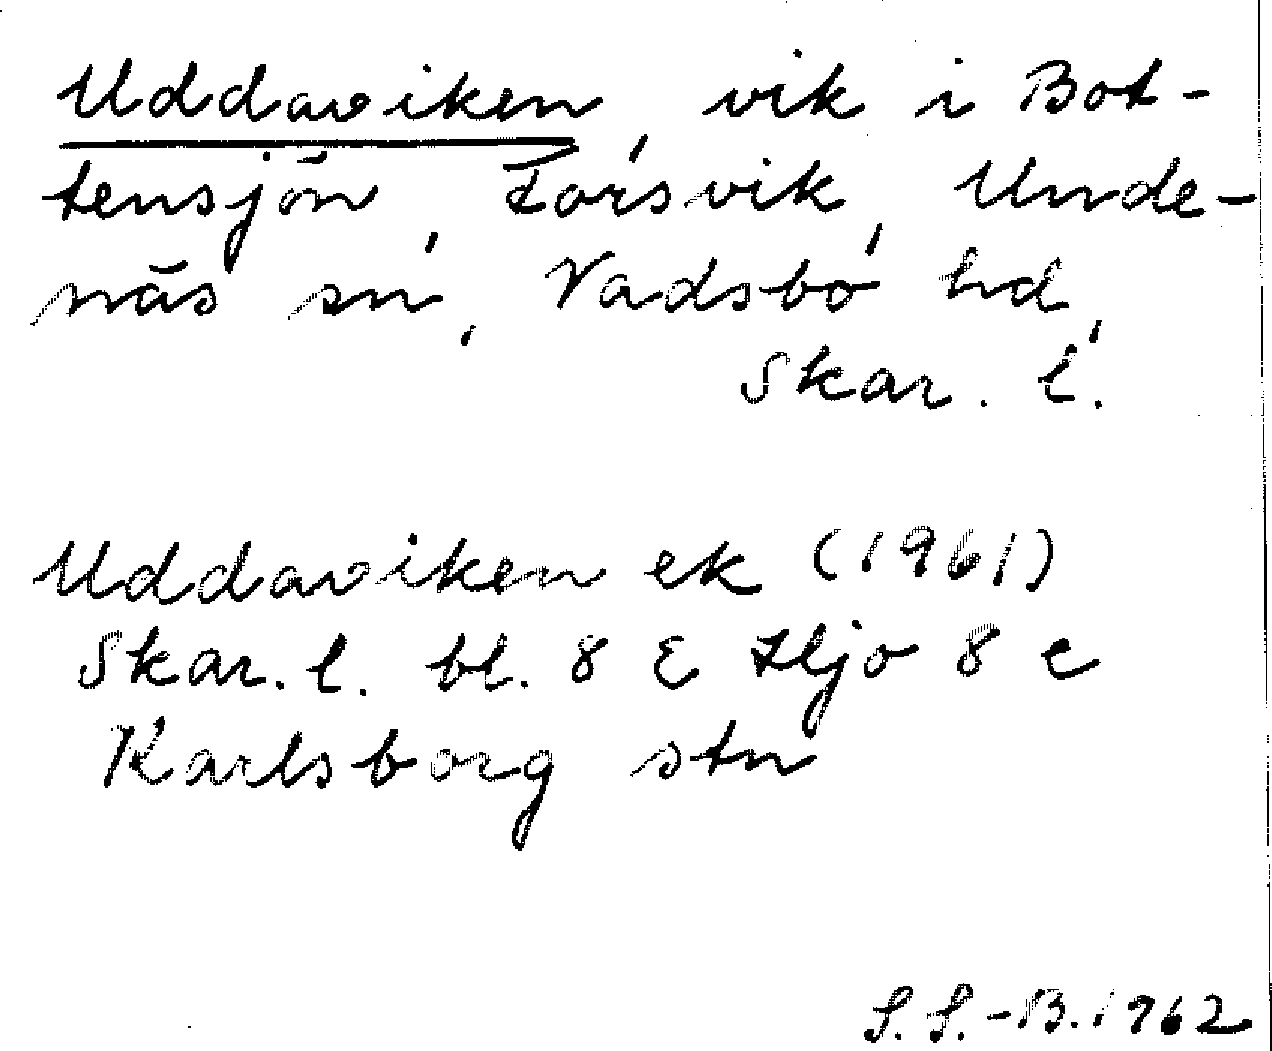 Uddaviken, vik i Bot-
tensjön, Forsvik, Unde-
näs sn, Vadsbo hd,
Skar. l.
Uddaviken ek (1961)
Skar. l. bl. 8 E Hjo 8 e
Karlsborg stn
S. S.-B. 1962